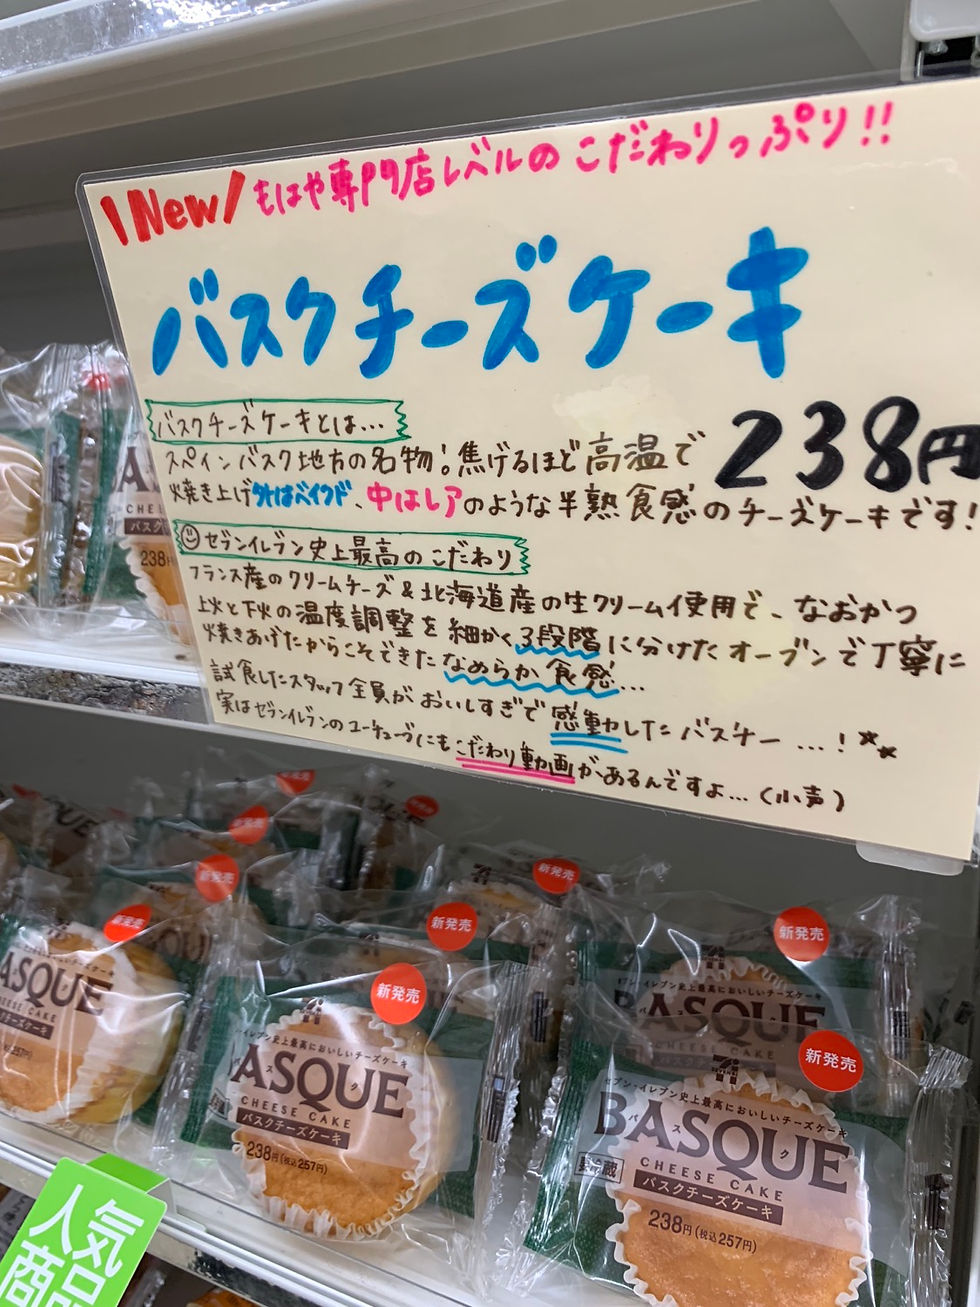 \New/ もはや専門店レベルの こだわりっぷり!!
バスクチーズケーキ
バスクチーズケーキとは…
スペインバスク地方の名物!焦げるほど高温で
238円
焼き上げ外はベイクド、中はレアのような半熟食感のチーズケーキです!
セブンイレブン史上最高のこだわり
フランス産のクリームチーズ&北海道産の生クリーム使用で、なおかつ
上火と下火の温度調整を細かく3段階に分けたオーブンで丁寧に
焼きあげたからこそできたなめらか食感…
試食したスタッフ全員がおいしすぎで感動したバスチー…!**
実はセブンイレブンのユーチューブにもこだわり動画があるんですよ…(小声)
CHEE
バスク
238円
新発売
新発売
新発売
新発売
新発売
セブン-イレブン史上最高においしいチーズケーキ
BASQUE
バスク
CHEESE CAKE
バスクチーズケーキ
新発売
ASQUE
CHEESE CAKE
クチーズケーキ
(税込257円)
新発売
イレブン史上最高においしいチーズケーキ
BASQUE
スク
CHEESE CAKE
バスクチーズケーキ
238円(税込257円)
新発売
セブン-イレブン史上最高においしいチーズケーキ
BASQUE
バスク
CHEESE CAKE
要冷蔵
バスクチーズケーキ
238円(税込257円)
人気
商品